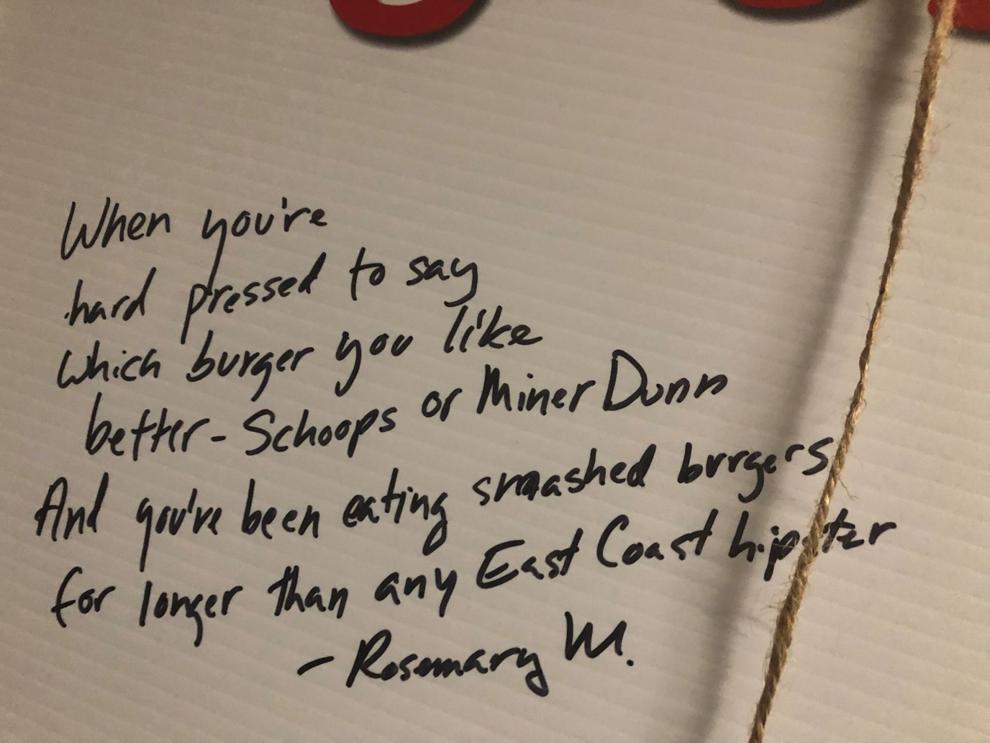 When you're
hard pressed to say
which burger you like
better - Schoops or Miner Dunn
And you've been eating smashed burgers
for longer than any East Coast hipster
- Rosemary M.